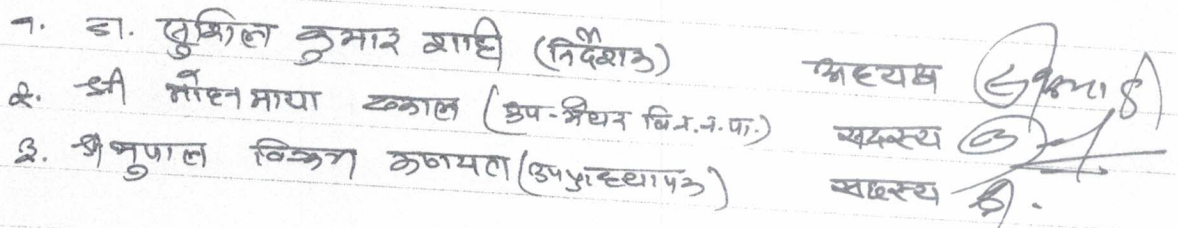 १. डा. सुशिल कुमार शाही (निर्देशक) अध्यक्ष
२. श्री मोहन माया ढकाल (उप-मेयर वि.न.पा.) सदस्य
३. श्री भुपाल विक्रम कनायत (उपप्राध्यापक) सदस्य